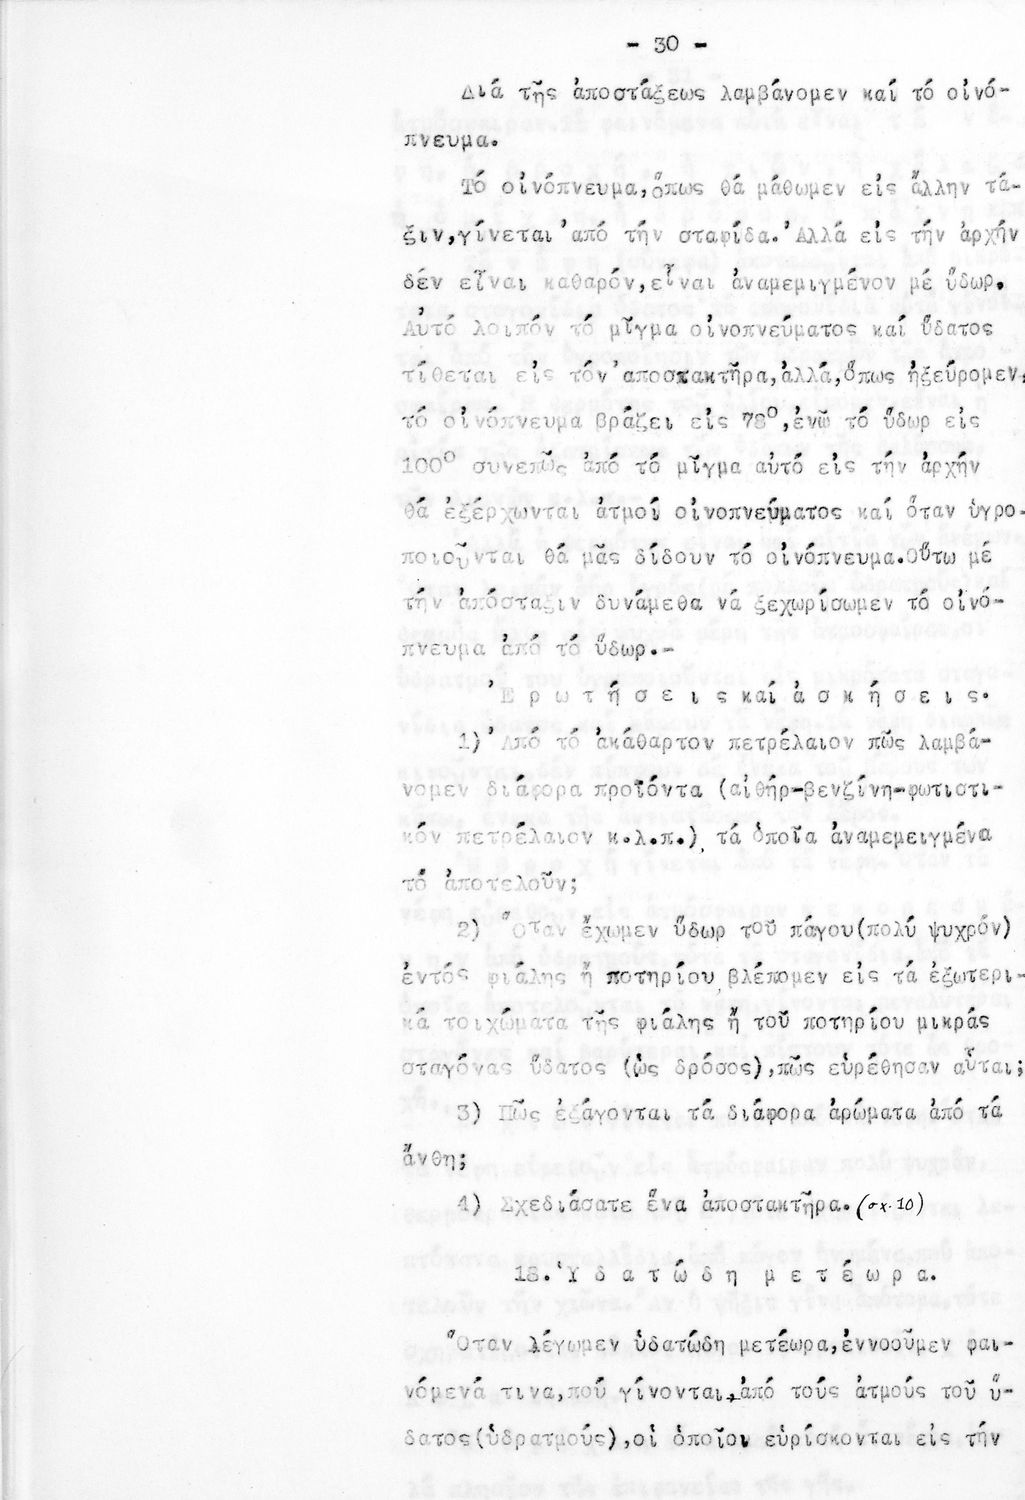 - 30 -
Διά τῆς ἀποστάξεως λαμβάνομεν καί τό οἰνό-
πνευμα.
Τό οἰνόπνευμα,ὅπως θά μάθωμεν εἰς ἄλλην τά-
ξιν,γίνεται ἀπό τήν σταφίδα.Ἀλλά εἰς τήν ἀρχήν
δέν εἶναι καθαρόν,εἶναι ἀναμεμιγμένον μέ ὕδωρ.
Αὐτό λοιπόν τό μῖγμα οἰνοπνεύματος καί ὕδατος
τίθεται εἰς τόν ἀποστακτῆρα,ἀλλά,ὅπως ἠξεύρομεν,
τό οἰνόπνευμα βράζει εἰς 78°,ἐνῶ τό ὕδωρ εἰς
100° συνεπῶς ἀπό τό μῖγμα αὐτό εἰς τήν ἀρχήν
θά ἐξέρχωνται ἀτμοί οἰνοπνεύματος καί ὅταν ὑγρο-
ποιοῦνται θά μᾶς δίδουν τό οἰνόπνευμα.Οὕτω μέ
τήν ἀπόσταξιν δυνάμεθα νά ξεχωρίσωμεν τό οἰνό-
πνευμα ἀπό τό ὕδωρ.-
Ἐ ρ ω τ ή σ ε ι ς καί ἀ σ κ ή σ ε ι ς.
1) Ἀπό τό ἀκάθαρτον πετρέλαιον πῶς λαμβά-
νομεν διάφορα προϊόντα (αἰθήρ-βενζίνη-φωτιστι-
κόν πετρέλαιον κ.λ.π.), τά ὁποῖα ἀναμεμειγμένα
τό ἀποτελοῦν;
2) Ὅταν ἔχωμεν ὕδωρ τοῦ πάγου(πολύ ψυχρόν)
ἐντός φιάλης ἤ ποτηρίου, βλέπομεν εἰς τά ἐξωτερι-
κά τοιχώματα τῆς φιάλης ἤ τοῦ ποτηρίου μικράς
σταγόνας ὕδατος (ὡς δρόσος),πῶς εὑρέθησαν αὗται;
3) Πῶς ἐξάγονται τά διάφορα ἀρώματα ἀπό τά
ἄνθη;
4) Σχεδιάσατε ἕνα ἀποστακτῆρα.(σχ.10)
18.Ὑ δ α τ ώ δ η μ ε τ έ ω ρ α.
Ὅταν λέγωμεν ὑδατώδη μετέωρα,ἐννοοῦμεν φαι-
νόμενά τινα,πού γίνονται ἀπό τούς ἀτμούς τοῦ ὕ-
δατος(ὑδρατμούς),οἱ ὁποῖοι εὑρίσκονται εἰς τήν